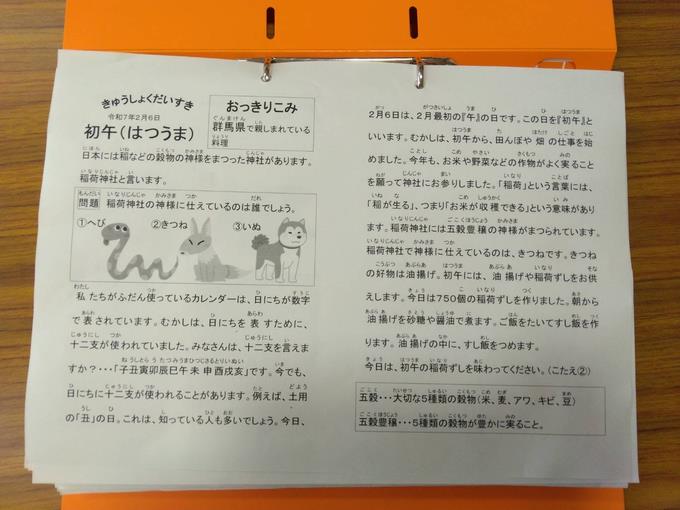 きゅうしょくだいすき
令和7年2月6日
初午(はつうま)
おっきりこみ
群馬県で親しまれている
料理
日本には稲などの穀物の神様をまつった神社があります。
稲荷神社と言います。
問題 稲荷神社の神様に仕えているのは誰でしょう。
①へび ②きつね ③いぬ
私たちがふだん使っているカレンダーは、日にちが数字
で表されています。むかしは、日にちを表すために、
十二支が使われていました。みなさんは、十二支を言えま
すか?・・・「子丑寅卯辰巳午未申酉戌亥」です。今でも、
日にちに十二支が使われることがあります。例えば、土用
の「丑」の日。これは、知っている人も多いでしょう。今日、
2月6日は、2月最初の『午』の日です。この日を『初午』と
いいます。むかしは、初午から、田んぼや畑の仕事を始
めました。今年も、お米や野菜などの作物がよく実ること
を願って神社にお参りしました。「稲荷」という言葉には、
「稲が生る」、つまり「お米が収穫できる」という意味があり
ます。稲荷神社には五穀豊穣の神様がまつられています。
稲荷神社で神様に仕えているのは、きつねです。きつね
の好物は油揚げ。初午には、油揚げや稲荷ずしをお供
えします。今日は750個の稲荷ずしを作りました。朝から
油揚げを砂糖や醤油で煮ます。ご飯をたいてすし飯を作
ります。油揚げの中に、すし飯をつめます。
今日は、初午の稲荷ずしを味わってください。(こたえ②)
五穀・・・大切な5種類の穀物(米、麦、アワ、キビ、豆)
五穀豊穣・・・5種類の穀物が豊かに実ること。